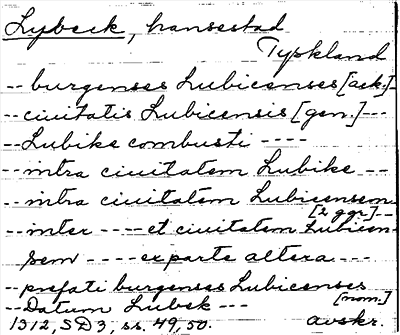 Lybeck, hansestad
Tyskland
-- burgenses Lubicenses [ack.] --
-- ciuitatis Lubicensis [gen.] ---
-- Lubike combusti ----
-- intra ciuitatem Lubike --
-- intra ciuitatem Lubicensem
[2 ggr] --
-- inter ---- et ciuitatem Lubicen-
sem ---- ex parte altera ---
-- prefati burgenses Lubicenses
[nom.]
-- Datum Lubek ---
1312, SD 3, ss. 49, 50. avskr.